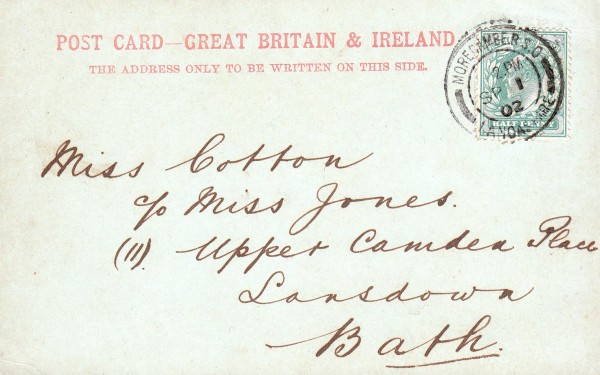 POST CARD—GREAT BRITAIN & IRELAND
THE ADDRESS ONLY TO BE WRITTEN ON THIS SIDE.
MORECAMBE S.O
2. PM
SP 1
02
LANCASHIRE
HALFPENNY
Miss Cotton
c/o Miss Jones.
(11). Upper Camden Place
Lansdown
Bath.